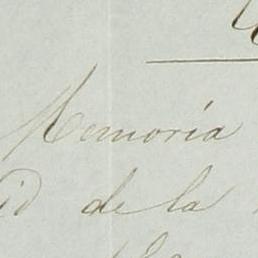 Memoria
id de la